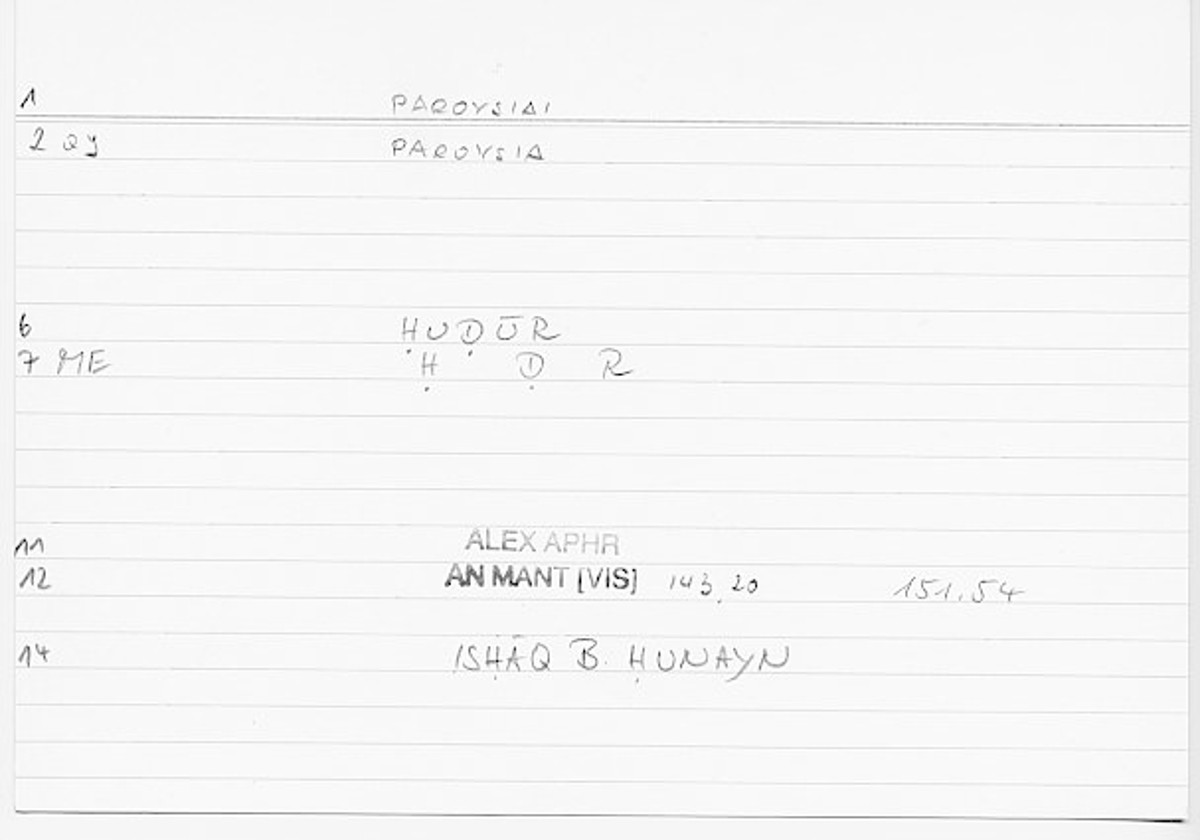 1 PAROYSIAI
2 QY PAROYSIA
6 ḤUḌŪR
7 ME Ḥ Ḍ R
11 ALEX APHR
12 AN MANT [VIS] 143,20 151.54
14 ISḤĀQ B. ḤUNAYN